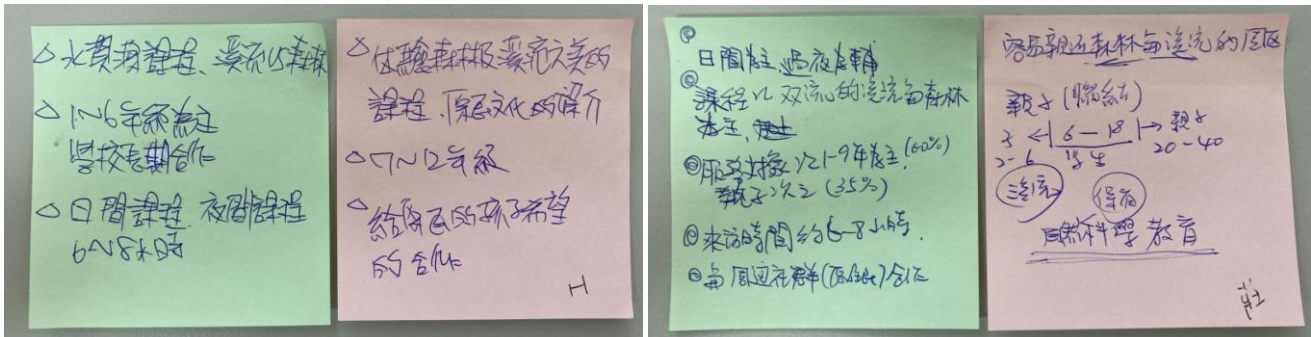 △水資源課程、溪流以森林
△1~6年級為主
學校長期合作
△日間課程.夜間課程
6~8小時
△体驗森林及溪流之美的
課程.原民文化的媒介
△7~12年級
△給原民的孩子希望
的合作
工
日間為主.過夜為輔
課程以双流的溪流与森林
為主.
服務対象以1-9年為主.(60%)
親子次之(35%)
來訪時間約6-8小時.
與周邊社群(原住民)合作
容易親近森林与溪流的園區
親子(聯結)
子←|6-18|→親子
2-6 学生 20-40
溪流 保育
自然科學教育
莊